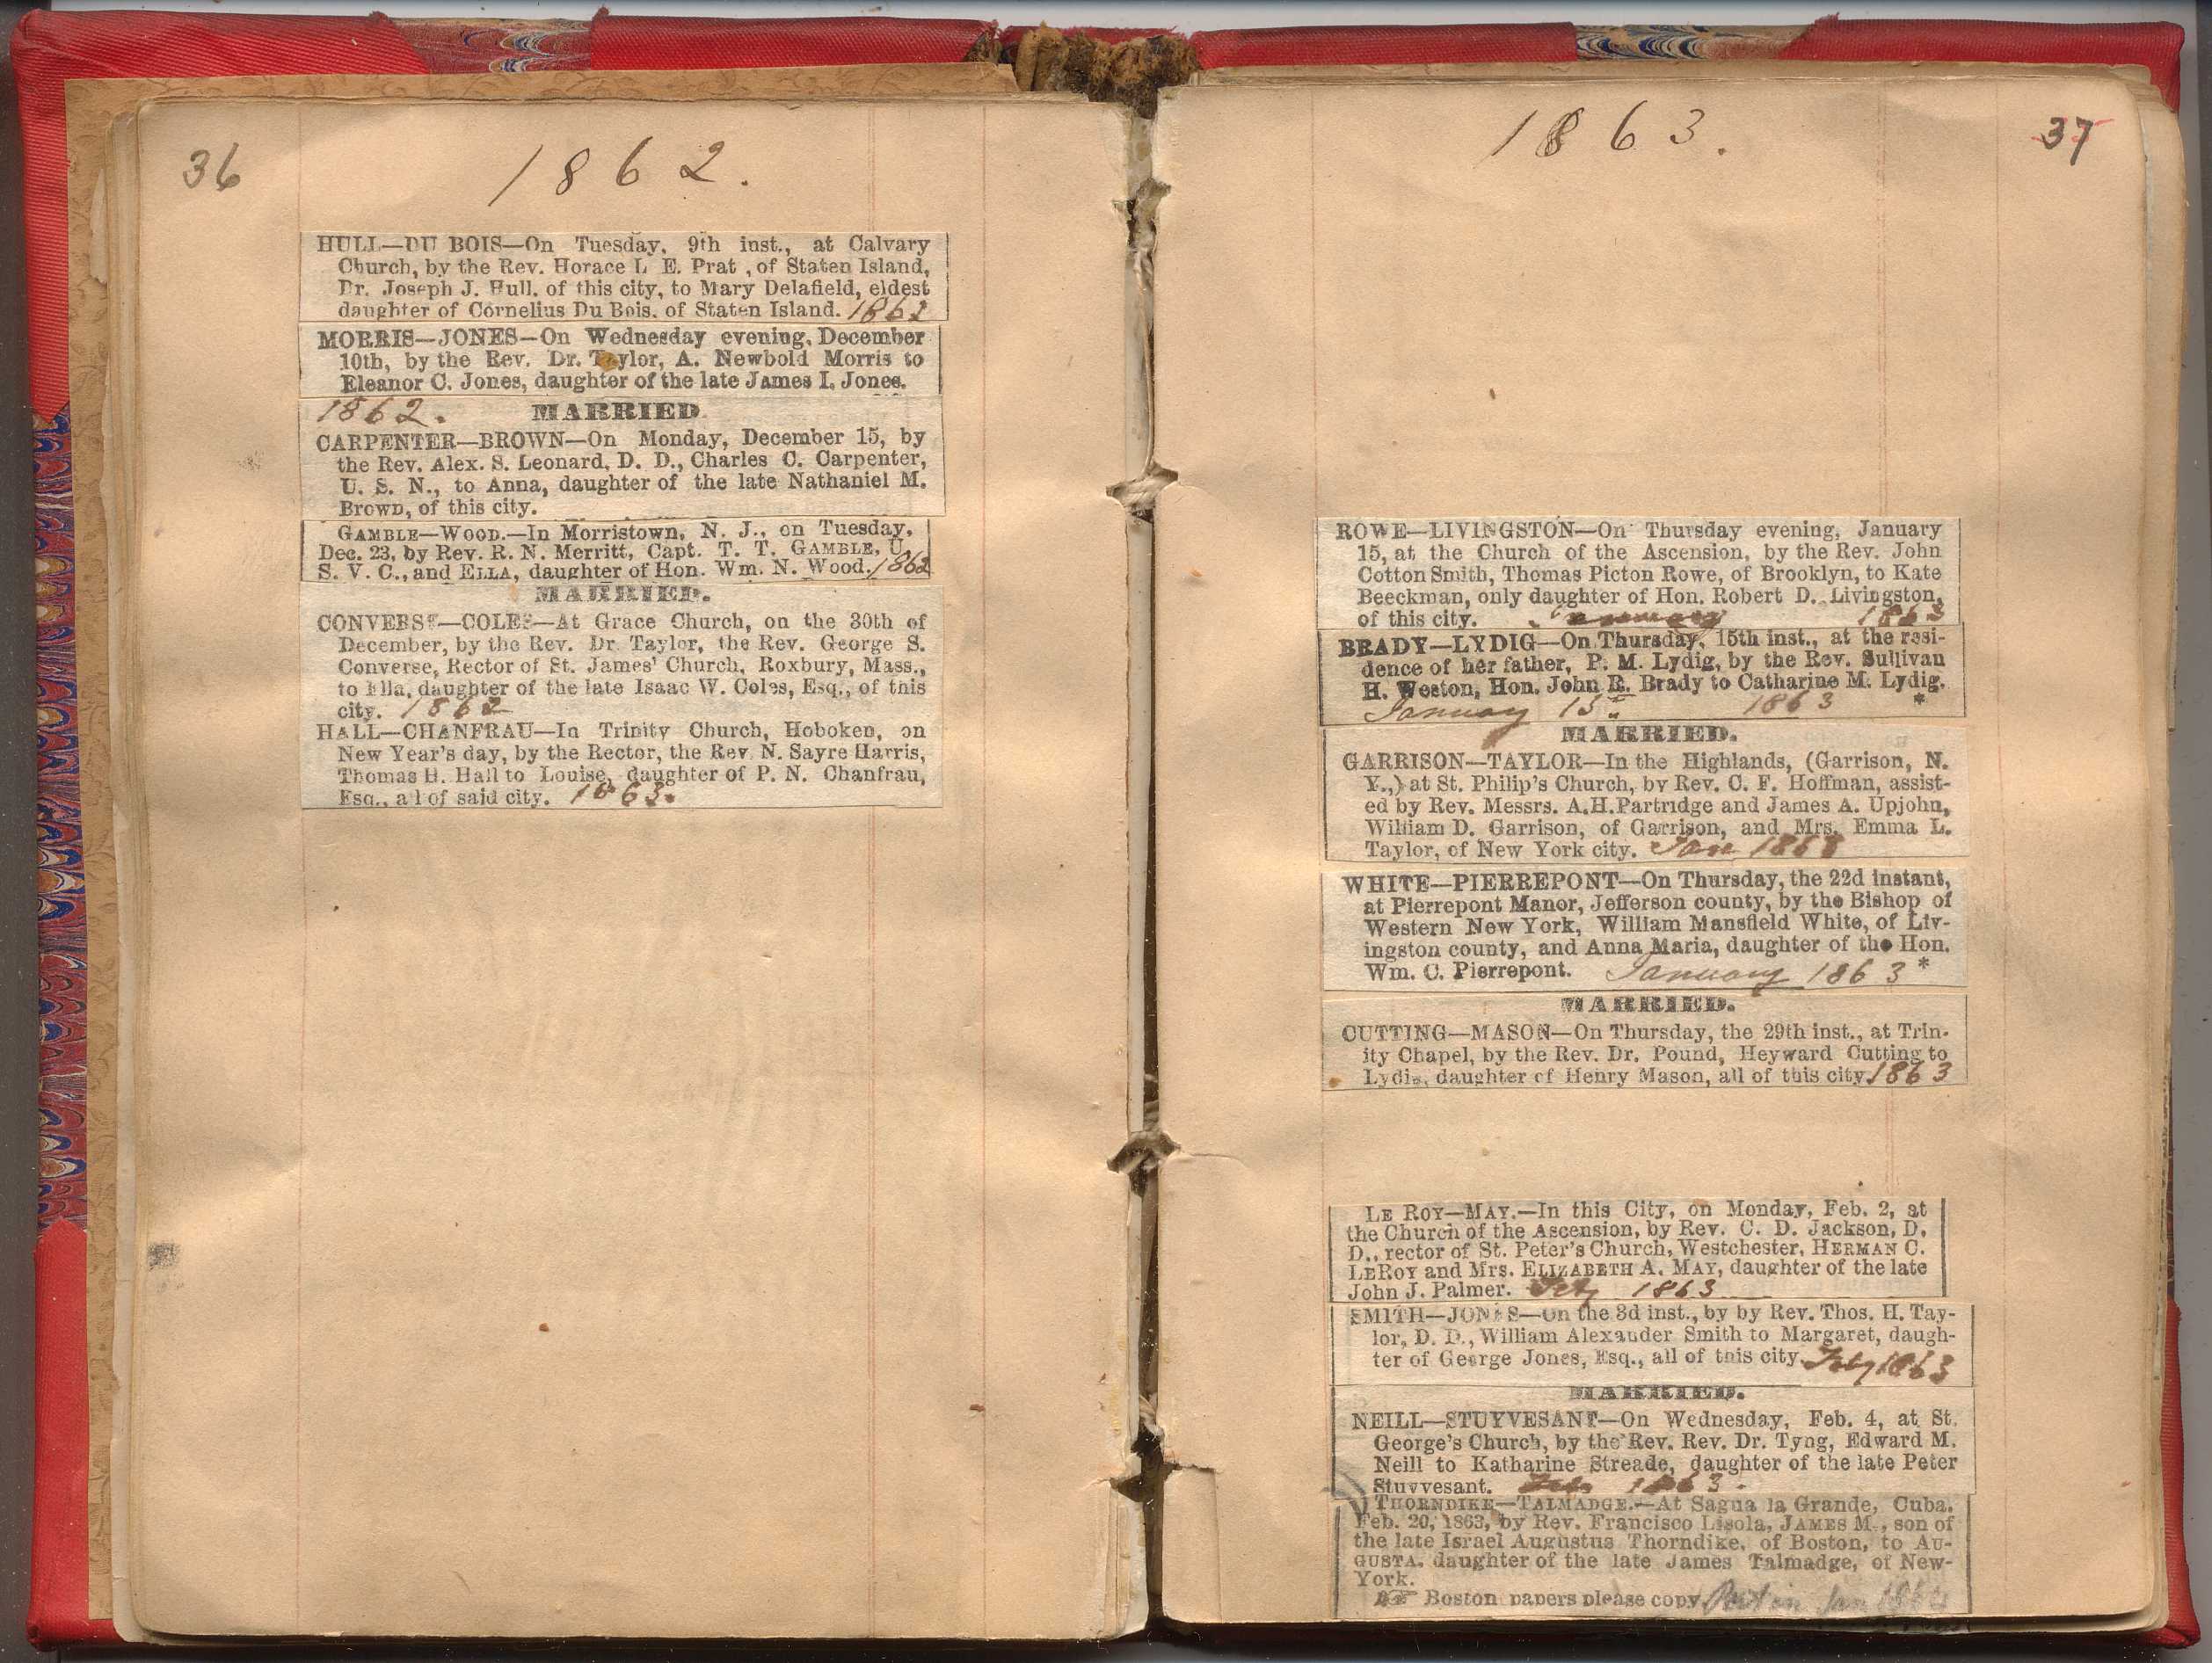 36
1862.
HULL—DU BOIS—On Tuesday, 9th inst., at Calvary
Church, by the Rev. Horace L E. Prat , of Staten Island,
Dr. Joseph J. Hull, of this city, to Mary Delafield, eldest
daughter of Cornelius Du Bois, of Staten Island. 1862
MORRIS—JONES—On Wednesday evening, December
10th, by the Rev. Dr. Taylor, A. Newbold Morris to
Eleanor C. Jones, daughter of the late James I. Jones.
1862. MARRIED
CARPENTER—BROWN—On Monday, December 15, by
the Rev. Alex. S. Leonard, D. D., Charles C. Carpenter,
U. S. N., to Anna, daughter of the late Nathaniel M.
Brown, of this city.
GAMBLE—WOOD.—In Morristown, N. J., on Tuesday,
Dec. 23, by Rev. R. N. Merritt, Capt. T. T. GAMBLE, U.
S. V. C., and ELLA, daughter of Hon. Wm. N. Wood. 1862
MARRIED.
CONVERSE—COLES—At Grace Church, on the 30th of
December, by the Rev. Dr. Taylor, the Rev. George S.
Converse, Rector of St. James' Church, Roxbury, Mass.,
to Ella, daughter of the late Isaac W. Coles, Esq., of this
city. 1862
HALL—CHANFRAU—In Trinity Church, Hoboken, on
New Year's day, by the Rector, the Rev. N. Sayre Harris,
Thomas H. Hall to Louise, daughter of P. N. Chanfrau,
Esq., all of said city. 1863.
1863.
37
ROWE—LIVINGSTON—On Thursday evening, January
15, at the Church of the Ascension, by the Rev. John
Cotton Smith, Thomas Picton Rowe, of Brooklyn, to Kate
Beeckman, only daughter of Hon. Robert D. Livingston,
of this city. January 1863
BRADY—LYDIG—On Thursday, 15th inst., at the resi-
dence of her father, P. M. Lydig, by the Rev. Sullivan
H. Weston, Hon. John R. Brady to Catharine M. Lydig.
January 15 1863 *
MARRIED.
GARRISON—TAYLOR—In the Highlands, (Garrison, N.
Y.,) at St. Philip's Church, by Rev. C. F. Hoffman, assist-
ed by Rev. Messrs. A.H.Partridge and James A. Upjohn,
William D. Garrison, of Garrison, and Mrs. Emma L.
Taylor, of New York city. Jan 1863
WHITE—PIERREPONT—On Thursday, the 22d instant,
at Pierrepont Manor, Jefferson county, by the Bishop of
Western New York, William Mansfield White, of Liv-
ingston county, and Anna Maria, daughter of the Hon.
Wm. C. Pierrepont. January 1863 *
MARRIED.
CUTTING—MASON—On Thursday, the 29th inst., at Trin-
ity Chapel, by the Rev. Dr. Pound, Heyward Cutting to
Lydia, daughter of Henry Mason, all of this city. 1863
LE ROY—MAY.—In this City, on Monday, Feb. 2, at
the Church of the Ascension, by Rev. C. D. Jackson, D.
D., rector of St. Peter's Church, Westchester, HERMAN C.
LEROY and Mrs. ELIZABETH A. MAY, daughter of the late
John J. Palmer. Feby 1863
SMITH—JONES—On the 3d inst., by by Rev. Thos. H. Tay-
lor, D. D., William Alexander Smith to Margaret, daugh-
ter of George Jones, Esq., all of this city. Feby 1863
MARRIED.
NEILL—STUYVESANT—On Wednesday, Feb. 4, at St.
George's Church, by the Rev. Rev. Dr. Tyng, Edward M.
Neill to Katharine Streade, daughter of the late Peter
Stuyvesant. Feb 1863.
THORNDIKE—TALMADGE.—At Sagua la Grande, Cuba.
Feb. 20, 1863, by Rev. Francisco Lisola, JAMES M., son of
the late Israel Augustus Thorndike, of Boston, to AU-
GUSTA, daughter of the late James Talmadge, of New-
York.
☞ Boston papers please copy.